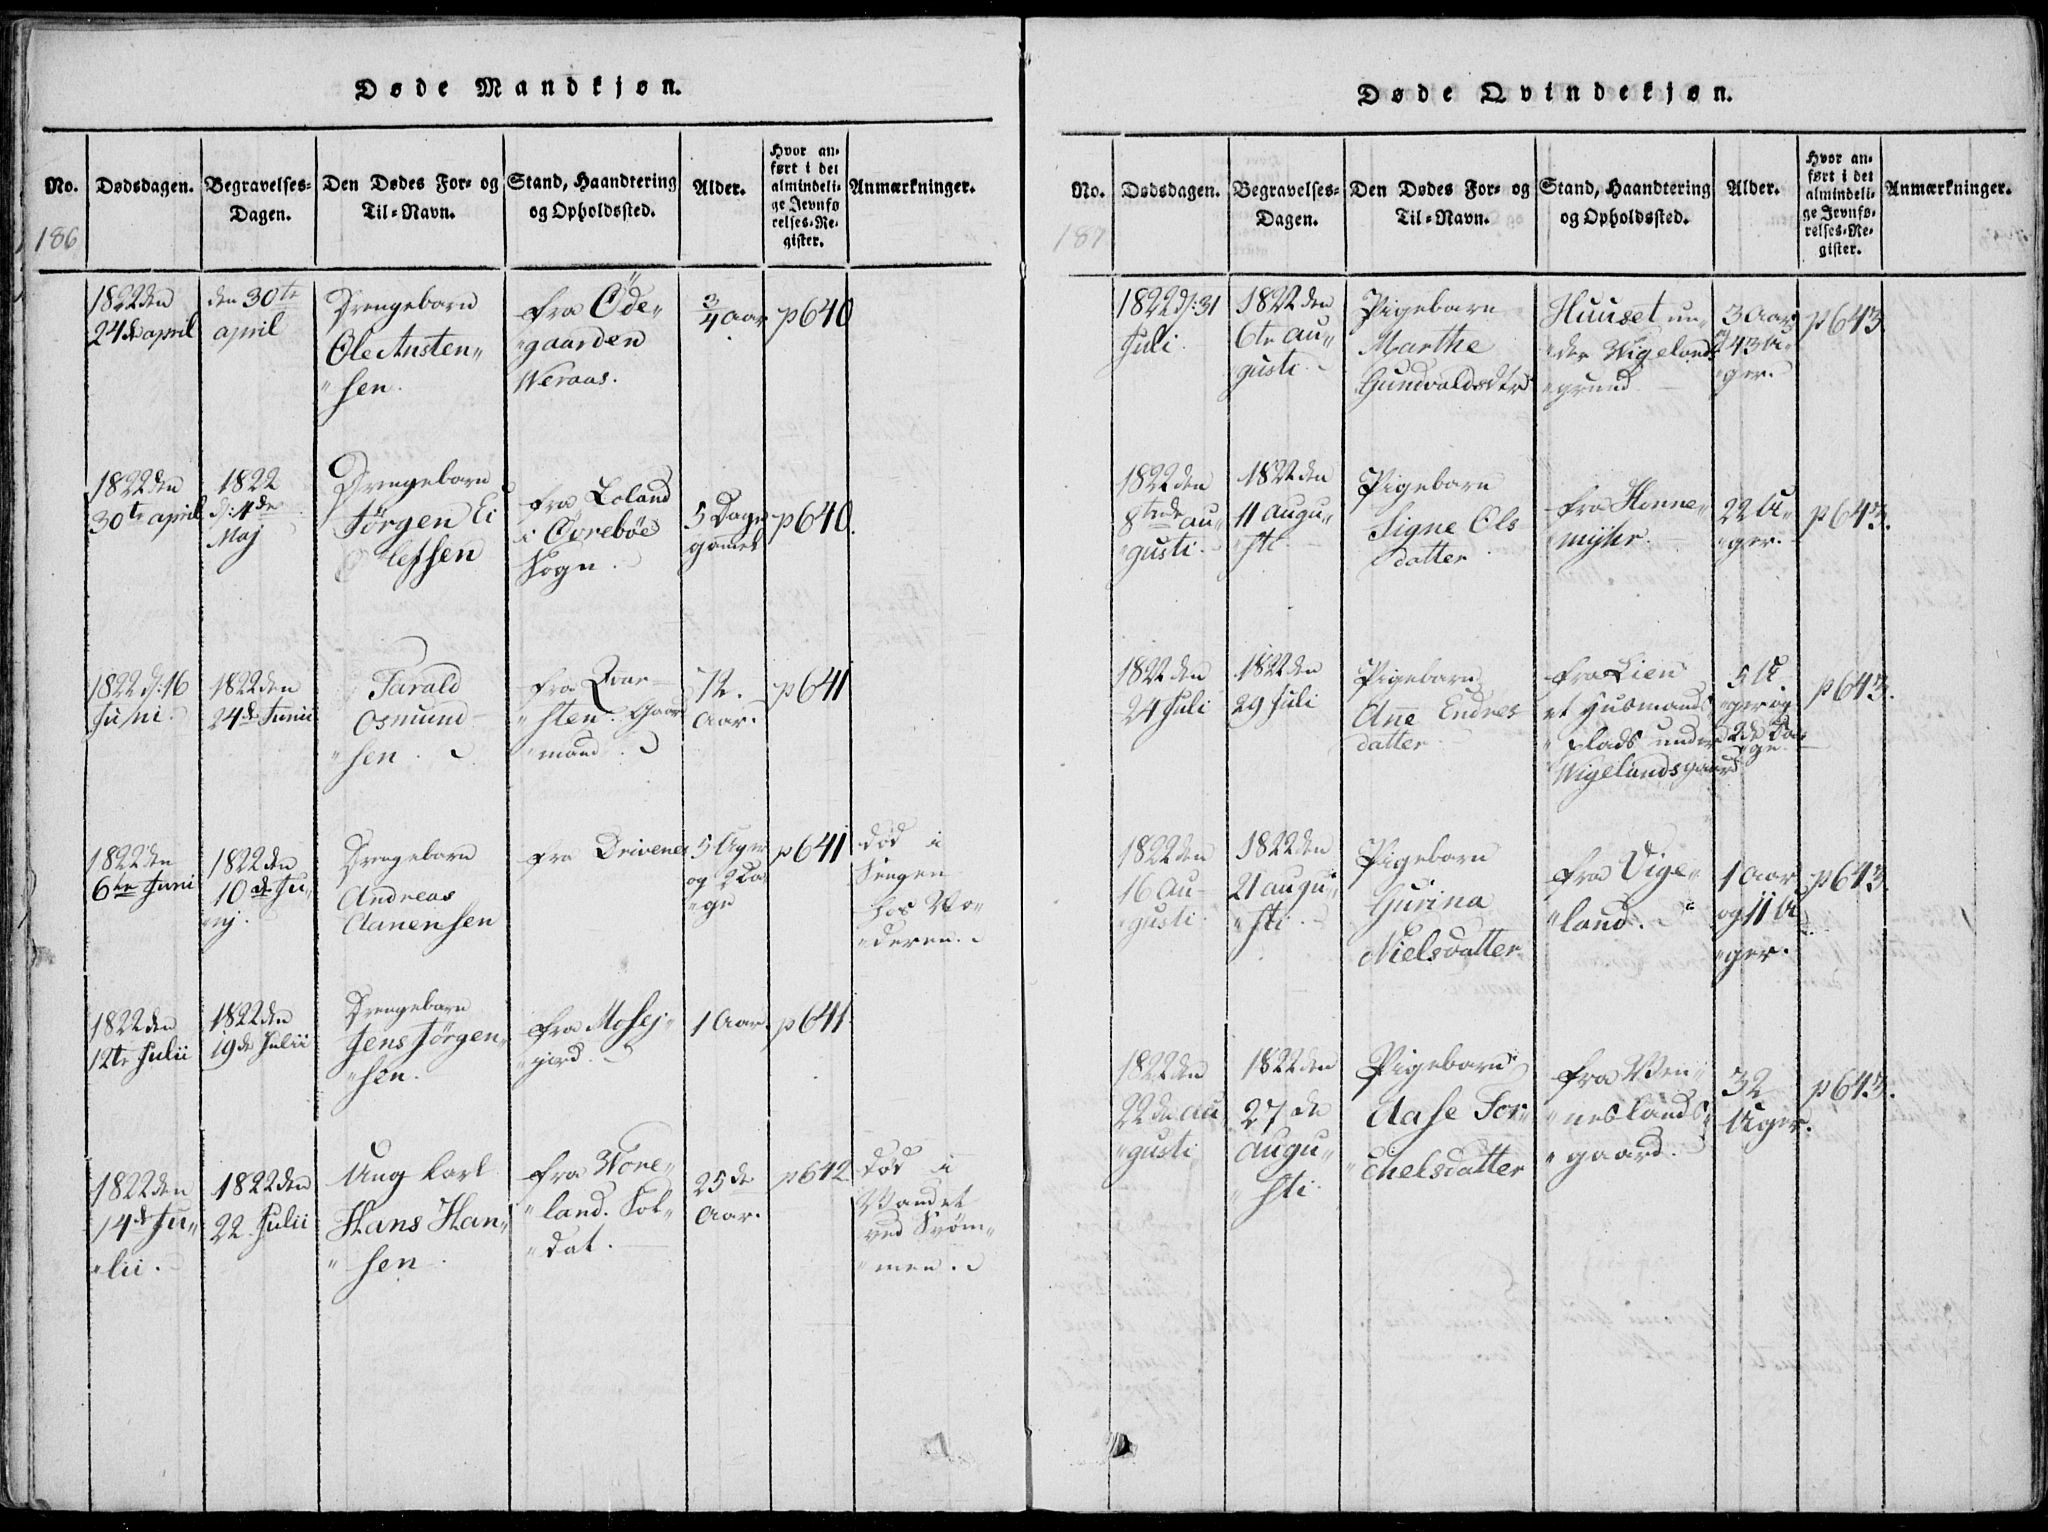 Døde Mandkjøn.
No.
Dødsdagen.
Begravelses-
Dagen.
Den Dødes For- og
Til-Navn.
Stand, Haandtering
og Opholdssted.
Alder.
Hvor an-
ført i det
almindeli-
ge Jevnfø-
relses-Re-
gister.
Anmærkninger.
186
1822 den
24de april
den 30te
april
Drengebarn
Ole Ansten-
sen.
fra Öde-
gaarden
Weraas.
3/4 Aar
p640
1822 den
30te april
1822
d: 4de
Maj
Drengebarn
Jörgen Ei
lefssen
fra Loland
i Øvrebøe
Sogn.
5 Dage
gammel
p640.
1822 d: 16
Juni.
1822 den
24de Junii
Tarald
Osmund-
sen.
fra Qvar-
sten. Gaar
mand.
72.
Aar.
p641
1822 den
6te Juni
1822 den
10de Ju-
nj.
Drengebarn
Andreas
Aanensen
fra Drivenes
5 Uger
og 2 Da-
ge
p641
død i
Sengen
hos Mo-
deren.
1822 den
12te Julii
1822 den
19de Julii
Drengebarn
Jens Jörgen-
sen.
fra Mosej-
gird.
1 Aar.
p641
1822 den
14de Ju-
lii.
1822 den
22. Julii
Ung Karl
Hans Han-
sen
fra More-
land. Sol-
dat.
25de
Aar.
p642
død i
Vandet
ved Svøm-
men.
Døde Qvindekjøn.
No.
Dødsdagen.
Begravelses-
Dagen.
Den Dødes For- og
Til-Navn.
Stand, Haandtering
og Opholdssted.
Alder.
Hvor an-
ført i det
almindeli-
ge Jevnfø-
relses-Re-
gister.
Anmærkninger.
187
1822 d: 31
Juli.
1822 den
6te Au-
gusti.
Pigebarn
Marthe
Gunvoldsdtr
Huuset un-
der Wigelands
grund
3 Aar
og 43 U-
ger.
p643
1822 den
8tende au-
gusti.
1822 den
11 augu-
sti.
Pigebarn
Signe Ols
datter
fra Honne-
myhr.
22 U-
ger.
p643.
1822 den
24 Juli
1822 den
29 Juli
Pigebarn
Anne Endres
datter
fra Lien
et Husmands
plads under
Wigelandsgaard
5 U-
ger og
2de Da-
ge
p643.
1822 den
16 Au-
gusti.
1822 den
21 augu-
sti.
Pigebarn
Gurina
Nielsdatter
fra Vige-
land.
1 Aar
og 11 U-
ger.
p643
1822 den
22de au-
gusti
1822 den
27de
augu-
sti.
Pigebarn
Aase Tor-
chelsdatter
fra Ven-
neslands-
gaard.
32
Uger.
p643.